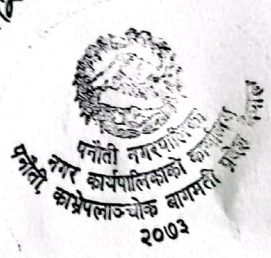 पनौती नगरपालिका
नगर कार्यपालिकाको कार्यालय
पनौती, काभ्रेपलाञ्चोक बागमती प्रदेश नेपाल
२०७३